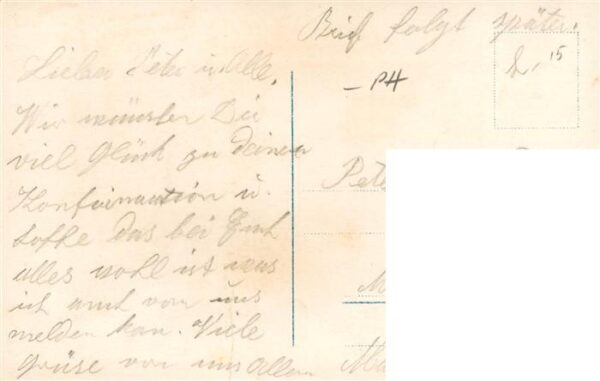 Brief folgt später.
Lieber Peter u. Alle,
Wir wünschen Dir
viel Glück zu deiner
Konfirmation u.
hoffe das bei Euch
alles wohl ist was
ich auch von uns
melden kan. Viele
Grüse von uns Allen
- PH
15
Pete
M